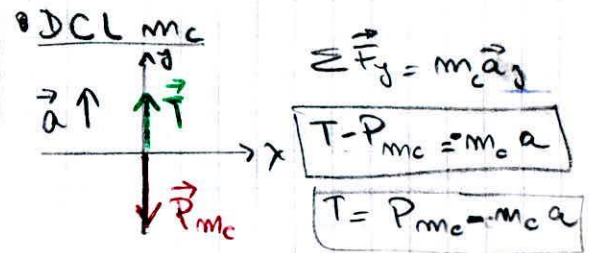 • DCL mc
y
a⃗ ↑ T⃗
x
P⃗mc
ΣF⃗y = mc a⃗y
T - Pmc = -mc a
T = Pmc - mc a